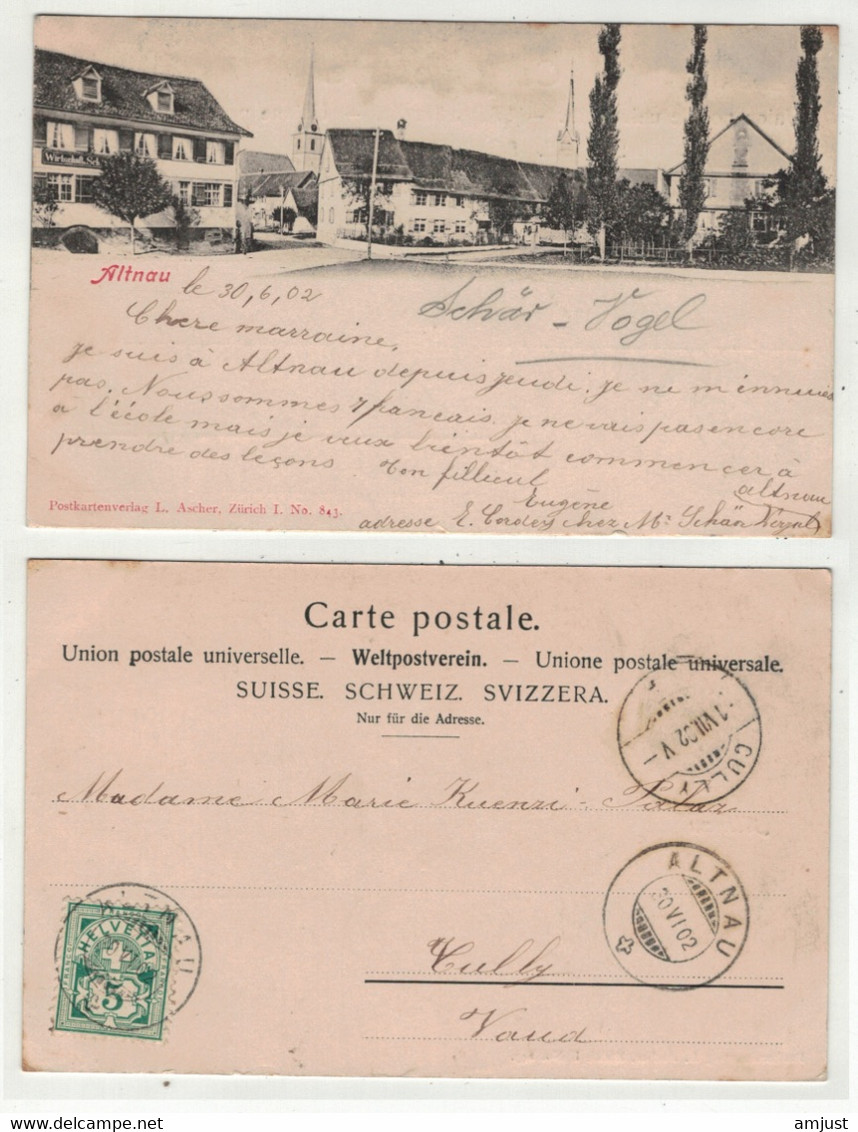 Wirtschaft z. Sch
Altnau
le 30,6,02
Schär - Vogel
Chere marraine,
je suis à Altnau depuis jeudi. je ne m'ennuies
pas. Nous sommes 7 francais. je ne vais pas encore
à l'école mais je veux bientôt commencer à
prendre des leçons. Ton filleul
Eugène
altnau
adresse E. Cordey chez Mr Schär Vogel
Postkartenverlag L. Ascher, Zürich I. No. 843.
Carte postale.
Union postale universelle. — Weltpostverein. — Unione postale universale.
SUISSE. SCHWEIZ. SVIZZERA.
Nur für die Adresse.
-1 VII.02.V-
CULLY
Madame Marie Kuenzi-
ALTNAU
30 VI 02
HELVETIA
5
Cully
Vaud
www.delcampe.net
amjust